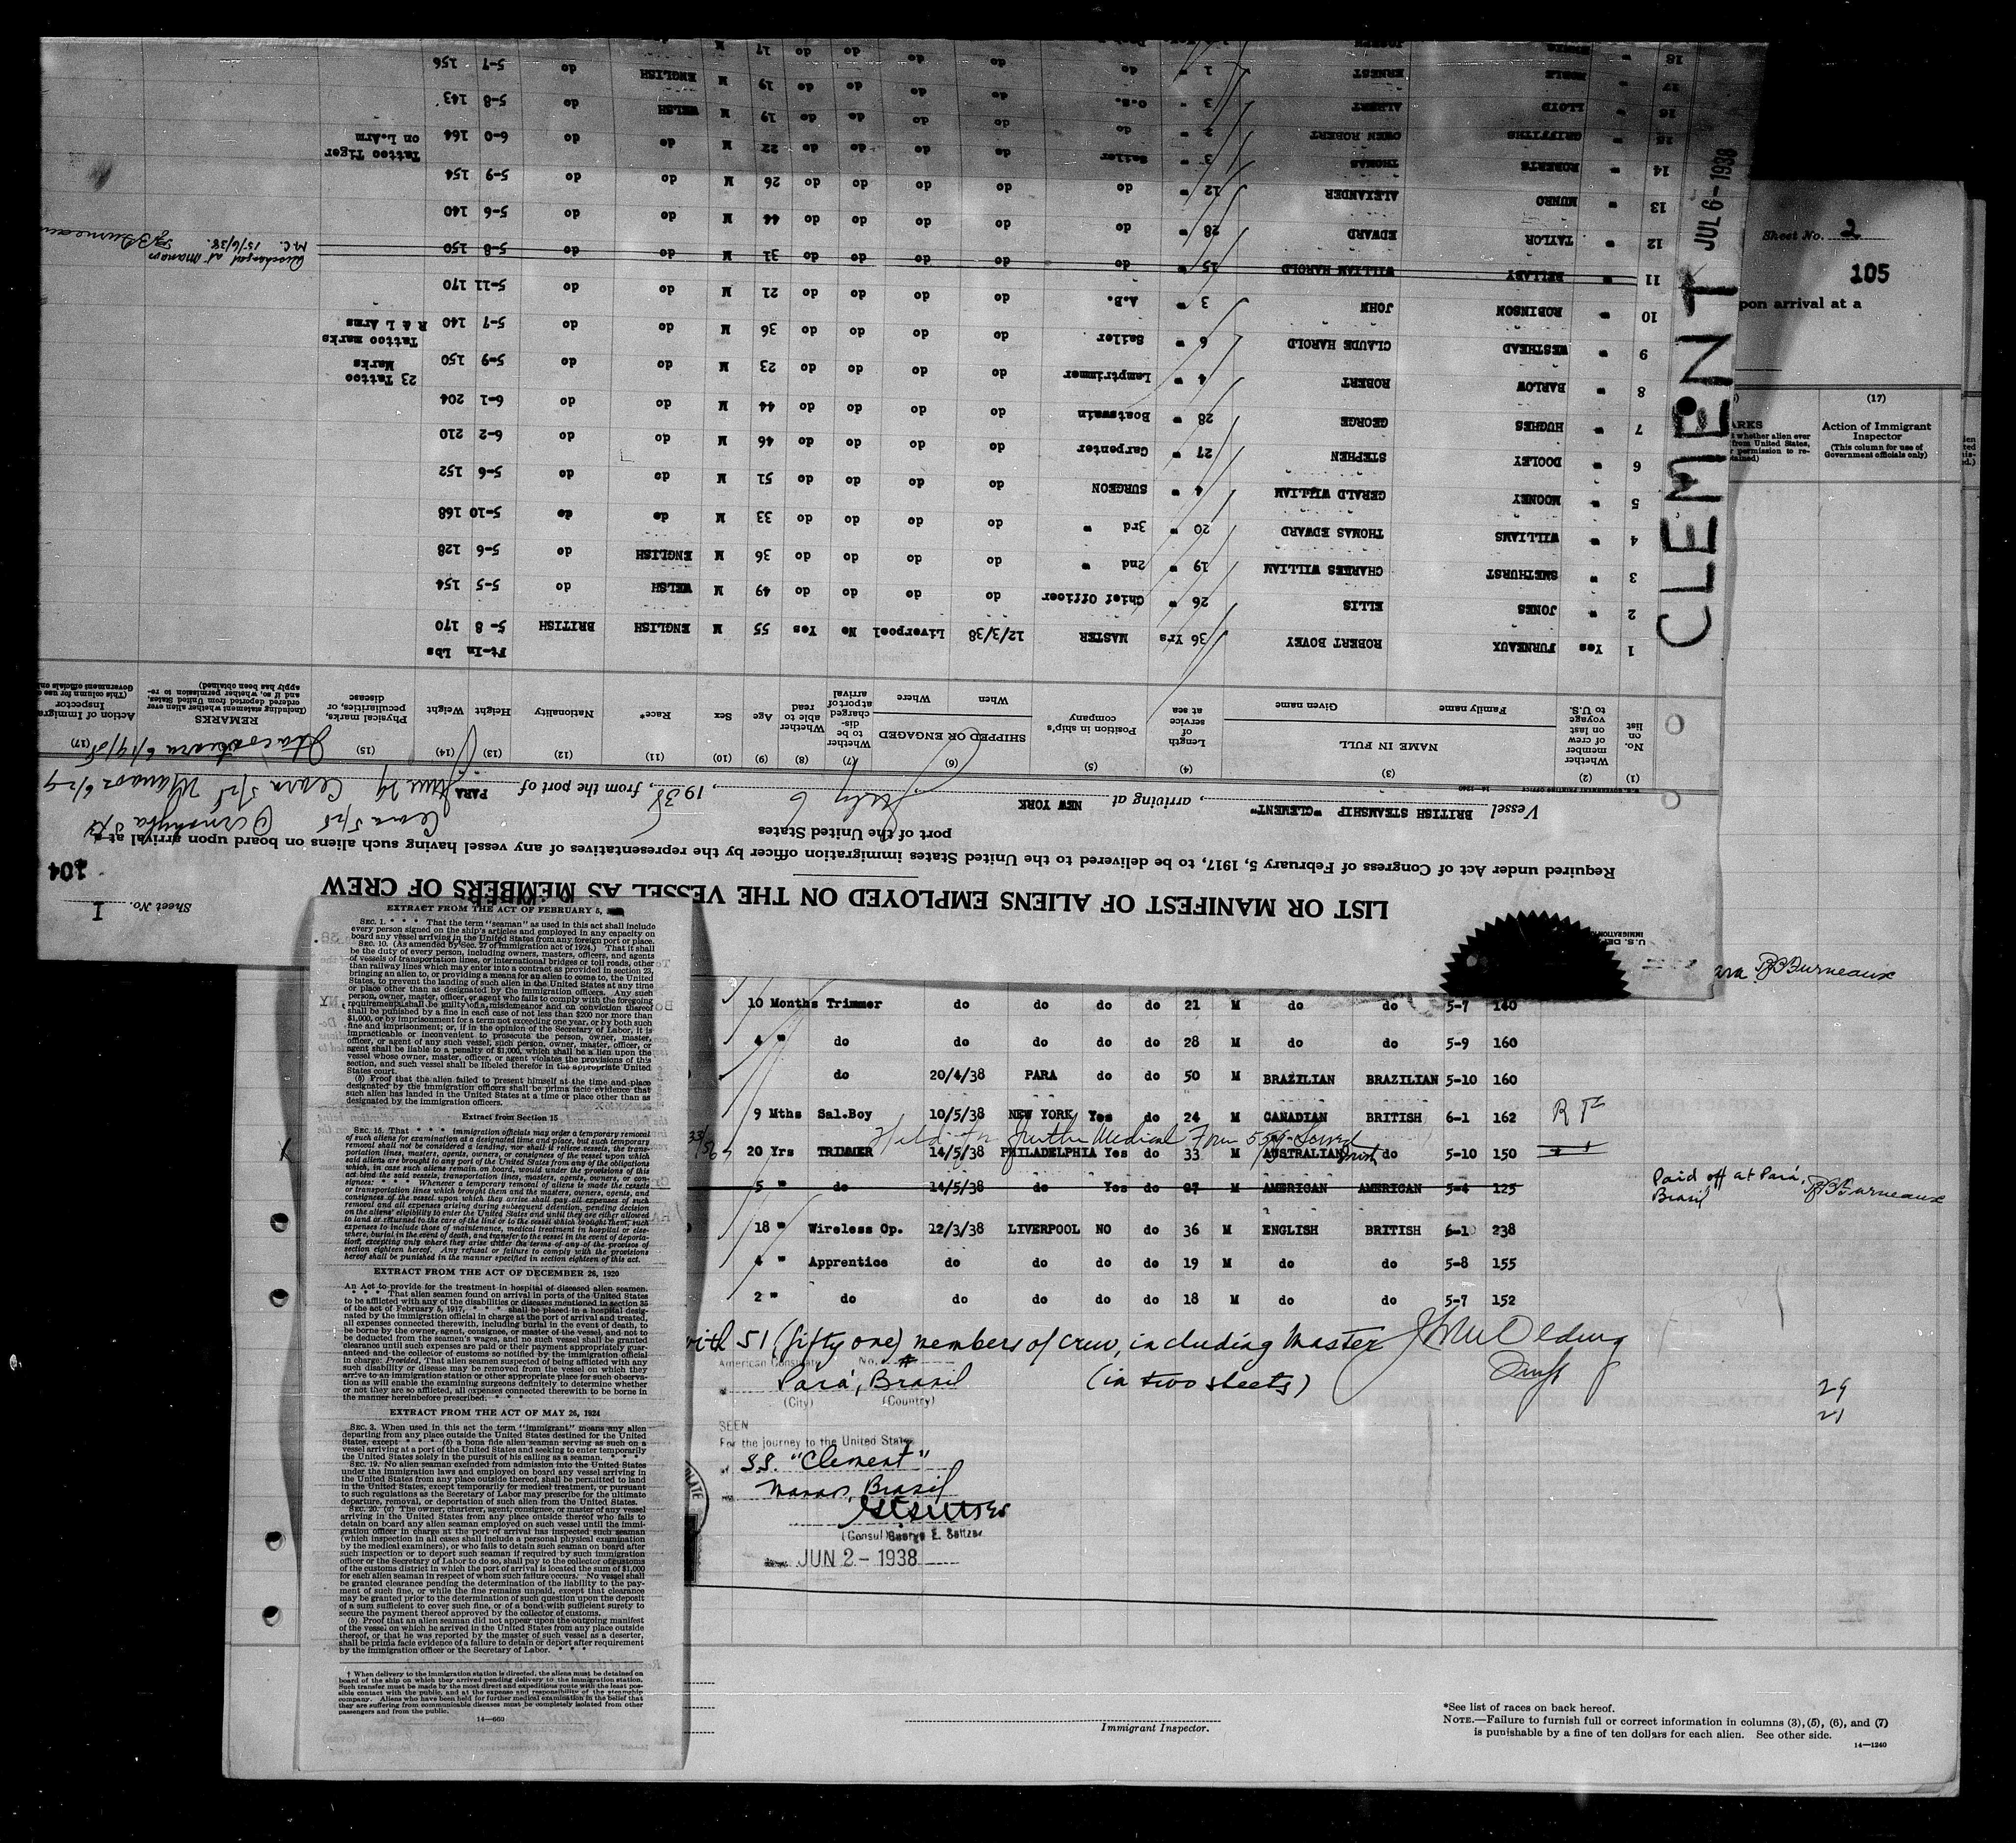 LIST OR MANIFEST OF ALIENS EMPLOYED ON THE VESSEL AS MEMBERS OF CREW
Sheet No. 1
104
Required under Act of Congress of February 5, 1917, to be delivered to the United States immigration officer by the representatives of any vessel having such aliens on board upon arrival at a
port of the United States
Vessel BRITISH STEAMSHIP "CLEMENT", arriving at NEW YORK July 6, 1938, from the port of PARA
(1) (2) (3) (4) (5) (6) (7) (8) (9) (10) (11) (12) (13) (14) (15) (17)
No. on list
Whether member of crew on last voyage to U.S.
NAME IN FULL
Family name Given name
Length of service at sea
Position in ship's company
SHIPPED OR ENGAGED
When Where
Whether to be discharged at port of arrival
Whether able to read
Age Sex Race* Nationality Height Weight
Physical marks, peculiarities, or disease
REMARKS
(Including statement whether alien ever ordered deported from United States, and if so, whether permission to re-apply has been obtained)
Ft-In Lbs
1 Yes FURNEAUX ROBERT BOVEY 36 Yrs MASTER 12/3/38 Liverpool No Yes 55 M ENGLISH BRITISH 5-8 170
2 " JONES ELLIS 26 " Chief Officer do do do do 49 M WELSH do 5-5 154
3 " SMETHURST CHARKES WILLIAM 19 " 2nd " do do do do 36 M ENGLISH do 5-6 128
4 " WILLIAMS THOMAS EDWARD 20 " 3rd " do do do do 33 M do do 5-10 168
5 " MOONEY GERALD WILLIAM 4 " SURGEON do do do do 51 M do do 5-6 152
6 " DOOLEY STEPHEN 27 " Carpenter do do do do 46 M do do 6-2 210
7 " HUGHES GEORGE 28 " Boatswain do do do do 44 M do do 6-1 204
8 " BARLOW ROBERT 4 " Lamptrimmer do do do do 23 M do do 5-9 150 23 Tattoo Marks
9 " WESTHEAD CLAUDE HAROLD 6 " Sailer do do do do 36 M do do 5-7 140 Tattoo marks R & L Arms
10 " ROBINSON JOHN 3 " A.B. do do do do 21 M do do 5-11 170
11 " BELLABY WILLIAM HAROLD 15 " do do do do do 31 M do do 5-8 150 Discharged at Manaos 15/6/38.
12 " TAYLOR EDWARD 28 " do do do do do 44 M do do 5-6 140
13 " MUNRO ALEXANDER 12 " do do do do do 26 M do do 5-9 154
14 " ROBERTS THOMAS 3 " Sailer do do do do 22 M do do 6-0 164 Tattoo Tiger on L.Arm
15 " GRIFFITHS OWEN ROBERT 2 " do do do do do 19 M WELSH do 5-8 143
16 " LLOYD ALBERT 3 " O.S. do do do do 19 M ENGLISH do 5-7 156
17 " NOBLE ERNEST 1 " do do do do do 17 M
18
CLEMENT JUL 6-1938
Sheet No. 2
105
upon arrival at a
(17)
Action of Immigrant Inspector
(This column for use of Government officials only)
EXTRACT FROM THE ACT OF FEBRUARY 5,
SEC. 1. * * * That the term "seaman" as used in this act shall include
every person signed on the ship's articles and employed in any capacity on
board any vessel arriving in the United States from any foreign port or place.
SEC. 10. (As amended by Sec. 27 of immigration act of 1924.) That it shall
be the duty of every person, including owners, masters, officers, and agents
of vessels of transportation lines, or international bridges or toll roads, other
than railway lines which may enter into a contract as provided in section 23,
bringing an alien to, or providing a means for an alien to come to, the United
States, to prevent the landing of such alien in the United States at any time
or place other than as designated by the immigration officers. Any such
person, owner, master, officer, or agent who fails to comply with the foregoing
requirements shall be guilty of a misdemeanor and on conviction thereof
shall be punished by a fine in each case of not less than $200 nor more than
$1,000, or by imprisonment for a term not exceeding one year, or by both such
fine and imprisonment; or, if in the opinion of the Secretary of Labor, it is
impracticable or inconvenient to prosecute the person, owner, master,
officer, or agent of any such vessel, such person, owner, master, officer, or
agent shall be liable to a penalty of $1,000, which shall be a lien upon the
vessel whose owner, master, officer, or agent violates the provisions of this
section, and such vessel shall be libeled therefor in the appropriate United
States court.
(b) Proof that the alien failed to present himself at the time and place
designated by the immigration officers shall be prima facie evidence that
such alien has landed in the United States at a time or place other than as
designated by the immigration officers.
Extract from Section 15
SEC. 15. That * * * immigration officials may order a temporary removal
of such aliens for examination at a designated time and place, but such temporary
removal shall not be considered a landing, nor shall it relieve vessels, the trans-
portation lines, masters, agents, owners, or consignees of the vessel upon which
said aliens are brought to any port of the United States from any of the obligations
which, in case such aliens remain on board, would under the provisions of this
act bind the said vessels, transportation lines, masters, agents, owners, or con-
signees: * * * Whenever a temporary removal of aliens is made the vessels
or transportation lines which brought them and the masters, owners, agents, and
consignees of the vessel upon which they arrive shall pay all expenses of such
removal and all expenses arising during subsequent detention, pending decision
on the aliens' eligibility to enter the United States and until they are either allowed
to land or returned to the care of the line or to the vessel which brought them, such
expenses to include those of maintenance, medical treatment in hospital or else-
where, burial in the event of death, and transfer to the vessel in the event of deporta-
tion, excepting only where they arise under the terms of any of the provisos of
section eighteen hereof. Any refusal or failure to comply with the provisions
hereof shall be punished in the manner specified in section eighteen of this act.
EXTRACT FROM THE ACT OF DECEMBER 26, 1920
An Act to provide for the treatment in hospital of diseased alien seamen.
* * * * That alien seamen found on arrival in ports of the United States
to be afflicted with any of the disabilities or diseases mentioned in section 35
of the act of February 5, 1917, * * * shall be placed in a hospital desig-
nated by the immigration official in charge at the port of arrival and treated,
all expenses connected therewith, including burial in the event of death, to
be borne by the owner, agent, consignee, or master of the vessel, and not to
be deducted from the seamen's wages, and no such vessel shall be granted
clearance until such expenses are paid or their payment appropriately guar-
anteed and the collector of customs so notified by the immigration official
in charge: Provided, That alien seamen suspected of being afflicted with any
such disability or disease may be removed from the vessel on which they
arrive to an immigration station or other appropriate place for such observa-
tion as will enable the examining surgeons definitely to determine whether
or not they are so afflicted, all expenses connected therewith to be borne in
the manner hereinbefore prescribed. * * *
EXTRACT FROM THE ACT OF MAY 26, 1924
SEC. 3. When used in this act the term "immigrant" means any alien
departing from any place outside the United States destined for the United
States, except * * * (5) a bona fide alien seaman serving as such on a
vessel arriving at a port of the United States and seeking to enter temporarily
the United States solely in the pursuit of his calling as a seaman. * * *
SEC. 19. No alien seaman excluded from admission into the United States
under the immigration laws and employed on board any vessel arriving in
the United States from any place outside thereof, shall be permitted to land
in the United States, except temporarily for medical treatment, or pursuant
to such regulations as the Secretary of Labor may prescribe for the ultimate
departure, removal, or deportation of such alien from the United States.
SEC. 20. (a) The owner, charterer, agent, consignee, or master of any vessel
arriving in the United States from any place outside thereof who fails to
detain on board any alien seaman employed on such vessel until the immi-
gration officer in charge at the port of arrival has inspected such seaman
(which inspection in all cases shall include a personal physical examination
by the medical examiners), or who fails to detain such seaman on board after
such inspection or to deport such seaman if required by such immigration
officer or the Secretary of Labor to do so, shall pay to the collector of customs
of the customs district in which the port of arrival is located the sum of $1,000
for each alien seaman in respect of whom such failure occurs. No vessel shall
be granted clearance pending the determination of the liability to the pay-
ment of such fine, or while the fine remains unpaid, except that clearance
may be granted prior to the determination of such question upon the deposit
of a sum sufficient to cover such fine, or of a bond with sufficient surety to
secure the payment thereof approved by the collector of customs.
(b) Proof that an alien seaman did not appear upon the outgoing manifest
of the vessel on which he arrived in the United States from any place outside
thereof, or that he was reported by the master of such vessel as a deserter,
shall be prima facie evidence of a failure to detain or deport after requirement
by the immigration officer or the Secretary of Labor. * * *
† When delivery to the immigration station is directed, the aliens must be detained on
board of the ship on which they arrived pending delivery to the immigration station.
Such transfer must be made by the most direct and expeditious route with the least pos-
sible contact with the public, and at the expense and responsibility of the steamship
company. Aliens who have been held for further medical examination in the belief that
they are suffering from communicable diseases must be completely isolated from other
passengers and from the public.
14—660
10 Months Trimmer do do do do 21 M do do 5-7 140
4 " do do do do do 28 M do do 5-9 160
do 20/4/38 PARA do do 50 M BRAZILIAN BRAZILIAN 5-10 160
9 Mths Sal.Boy 10/5/38 NEW YORK Yes do 24 M CANADIAN BRITISH 6-1 162
Held for further Medical Form
20 Yrs TRIMMER 14/5/38 PHILADELPHIA Yes do 33 M AUSTRALIAN do 5-10 150
5 " do 14/5/38 do Yes do 27 M AMERICAN AMERICAN 5-4 125 Paid off at Pará, Brasil RBFurneaux
18 " Wireless Op. 12/3/38 LIVERPOOL NO do 36 M ENGLISH BRITISH 6-1 238
4 " Apprentice do do do do 19 M do do 5-8 155
2 " do do do do do 18 M do do 5-7 152
with 51 (fifty one) members of crew, including Master
American Consulate No.
at Pará, Brasil (in two sheets)
(City) (Country)
SEEN
For the journey to the United States
S.S. "Clement"
Manaos, Brasil
(Consul) George E. Seltzer
JUN 2 - 1938
Immigrant Inspector.
*See list of races on back hereof.
NOTE.—Failure to furnish full or correct information in columns (3), (5), (6), and (7)
is punishable by a fine of ten dollars for each alien. See other side.
14—1240